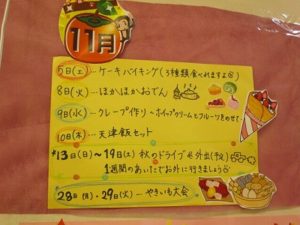 11月
5日(土)…ケーキバイキング(3種類食べれますよ☺)
8日(火)…ほかほかおでん
9日(水)…クレープ作り〜ホイップクリームとフルーツをのせて
10日(木)…天津飯セット
*13日(日)〜19日(土)秋のドライブ&外出(予定)
1週間のあいだでお外に行きましょう
28日(月)・29日(火)…やきいも大会